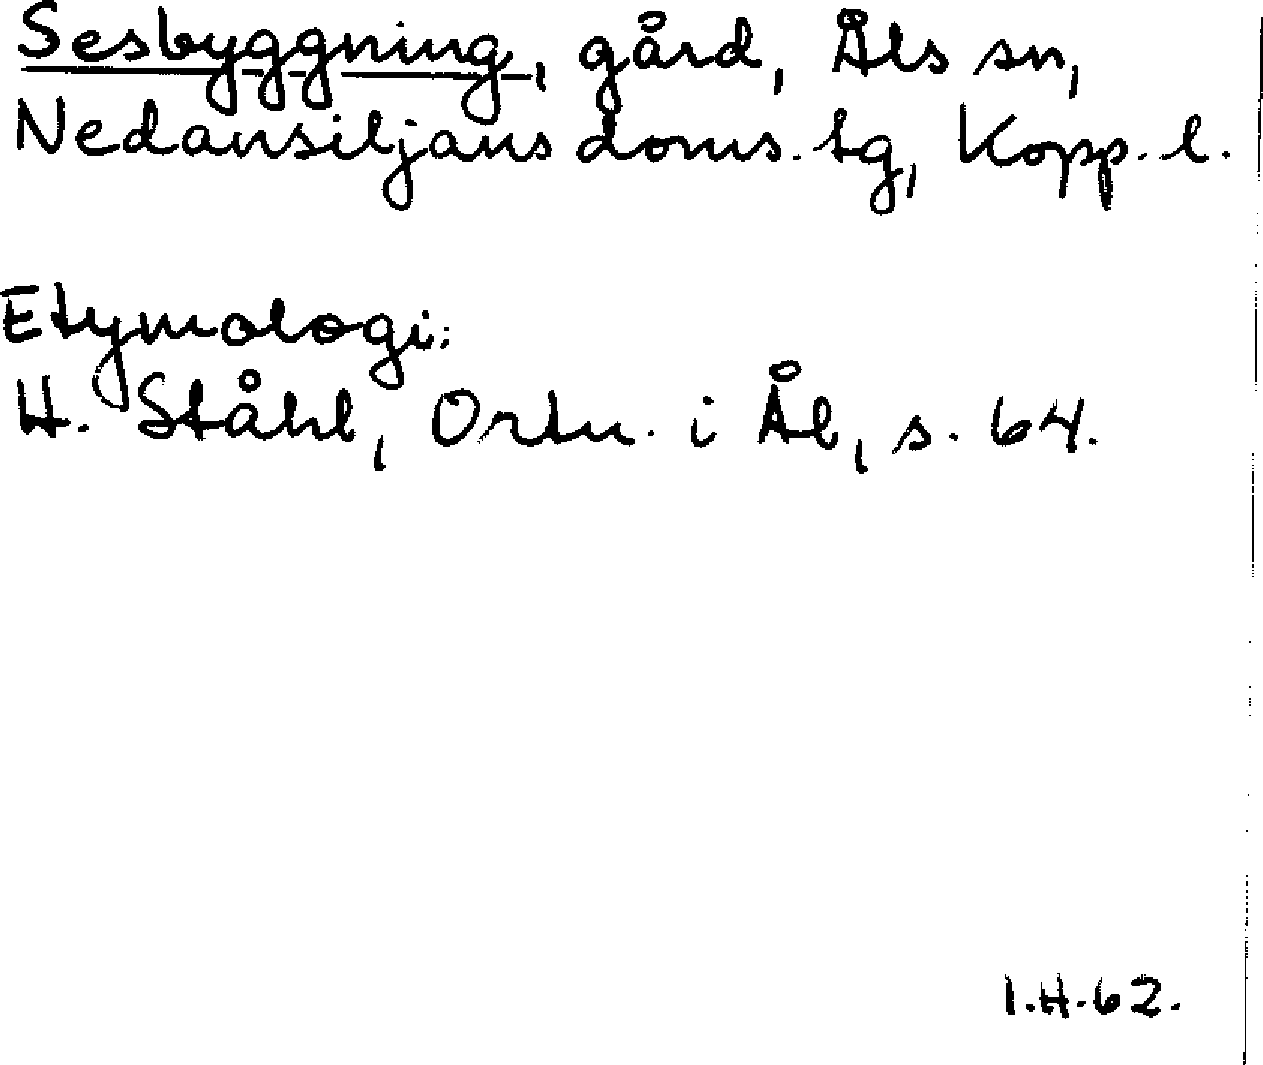 Sesbyggning, gård, Åls sn,
Nedansiljans doms. tg, Kopp. l.
Etymologi:
H. Ståhl, Ortn. i Ål, s. 64.
I.H.62.